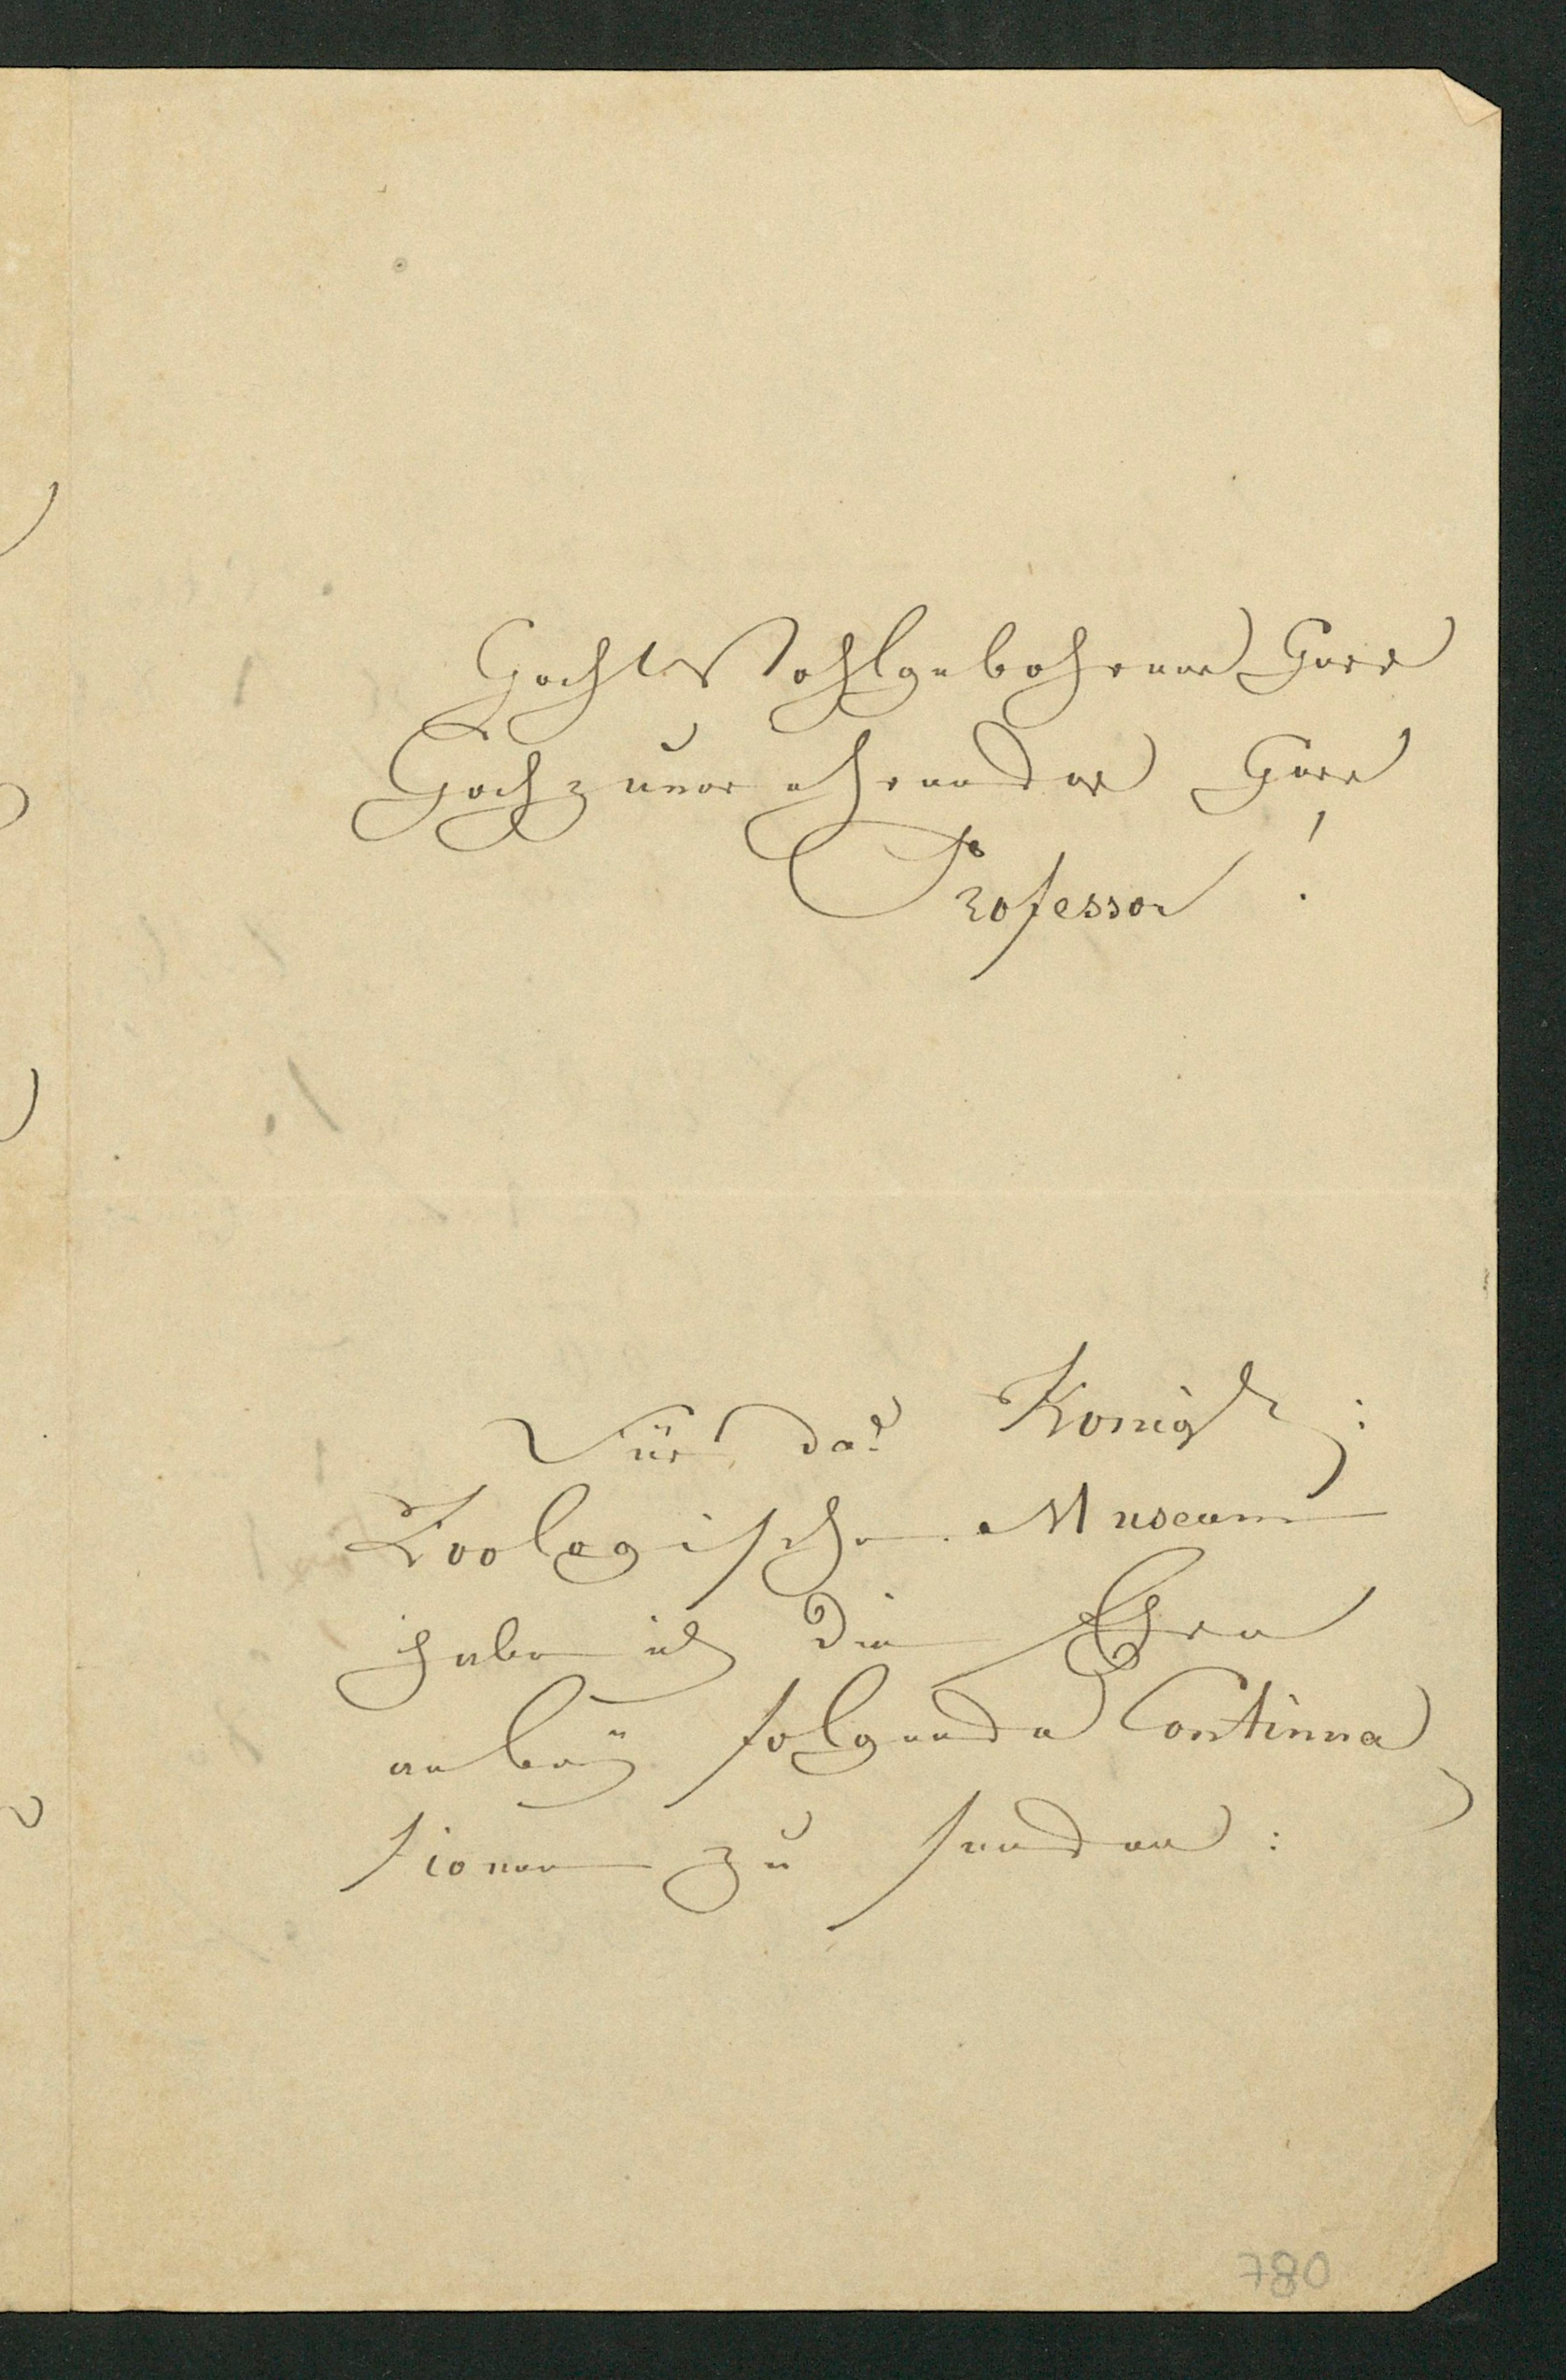 Hochwohlgebohrner Herr
Hochzuverehrender Herr
Professor!
Für das Königl:
Zoologische Museum
habe ich die Ehre
anbey folgende Continua
tionen zu senden:
780